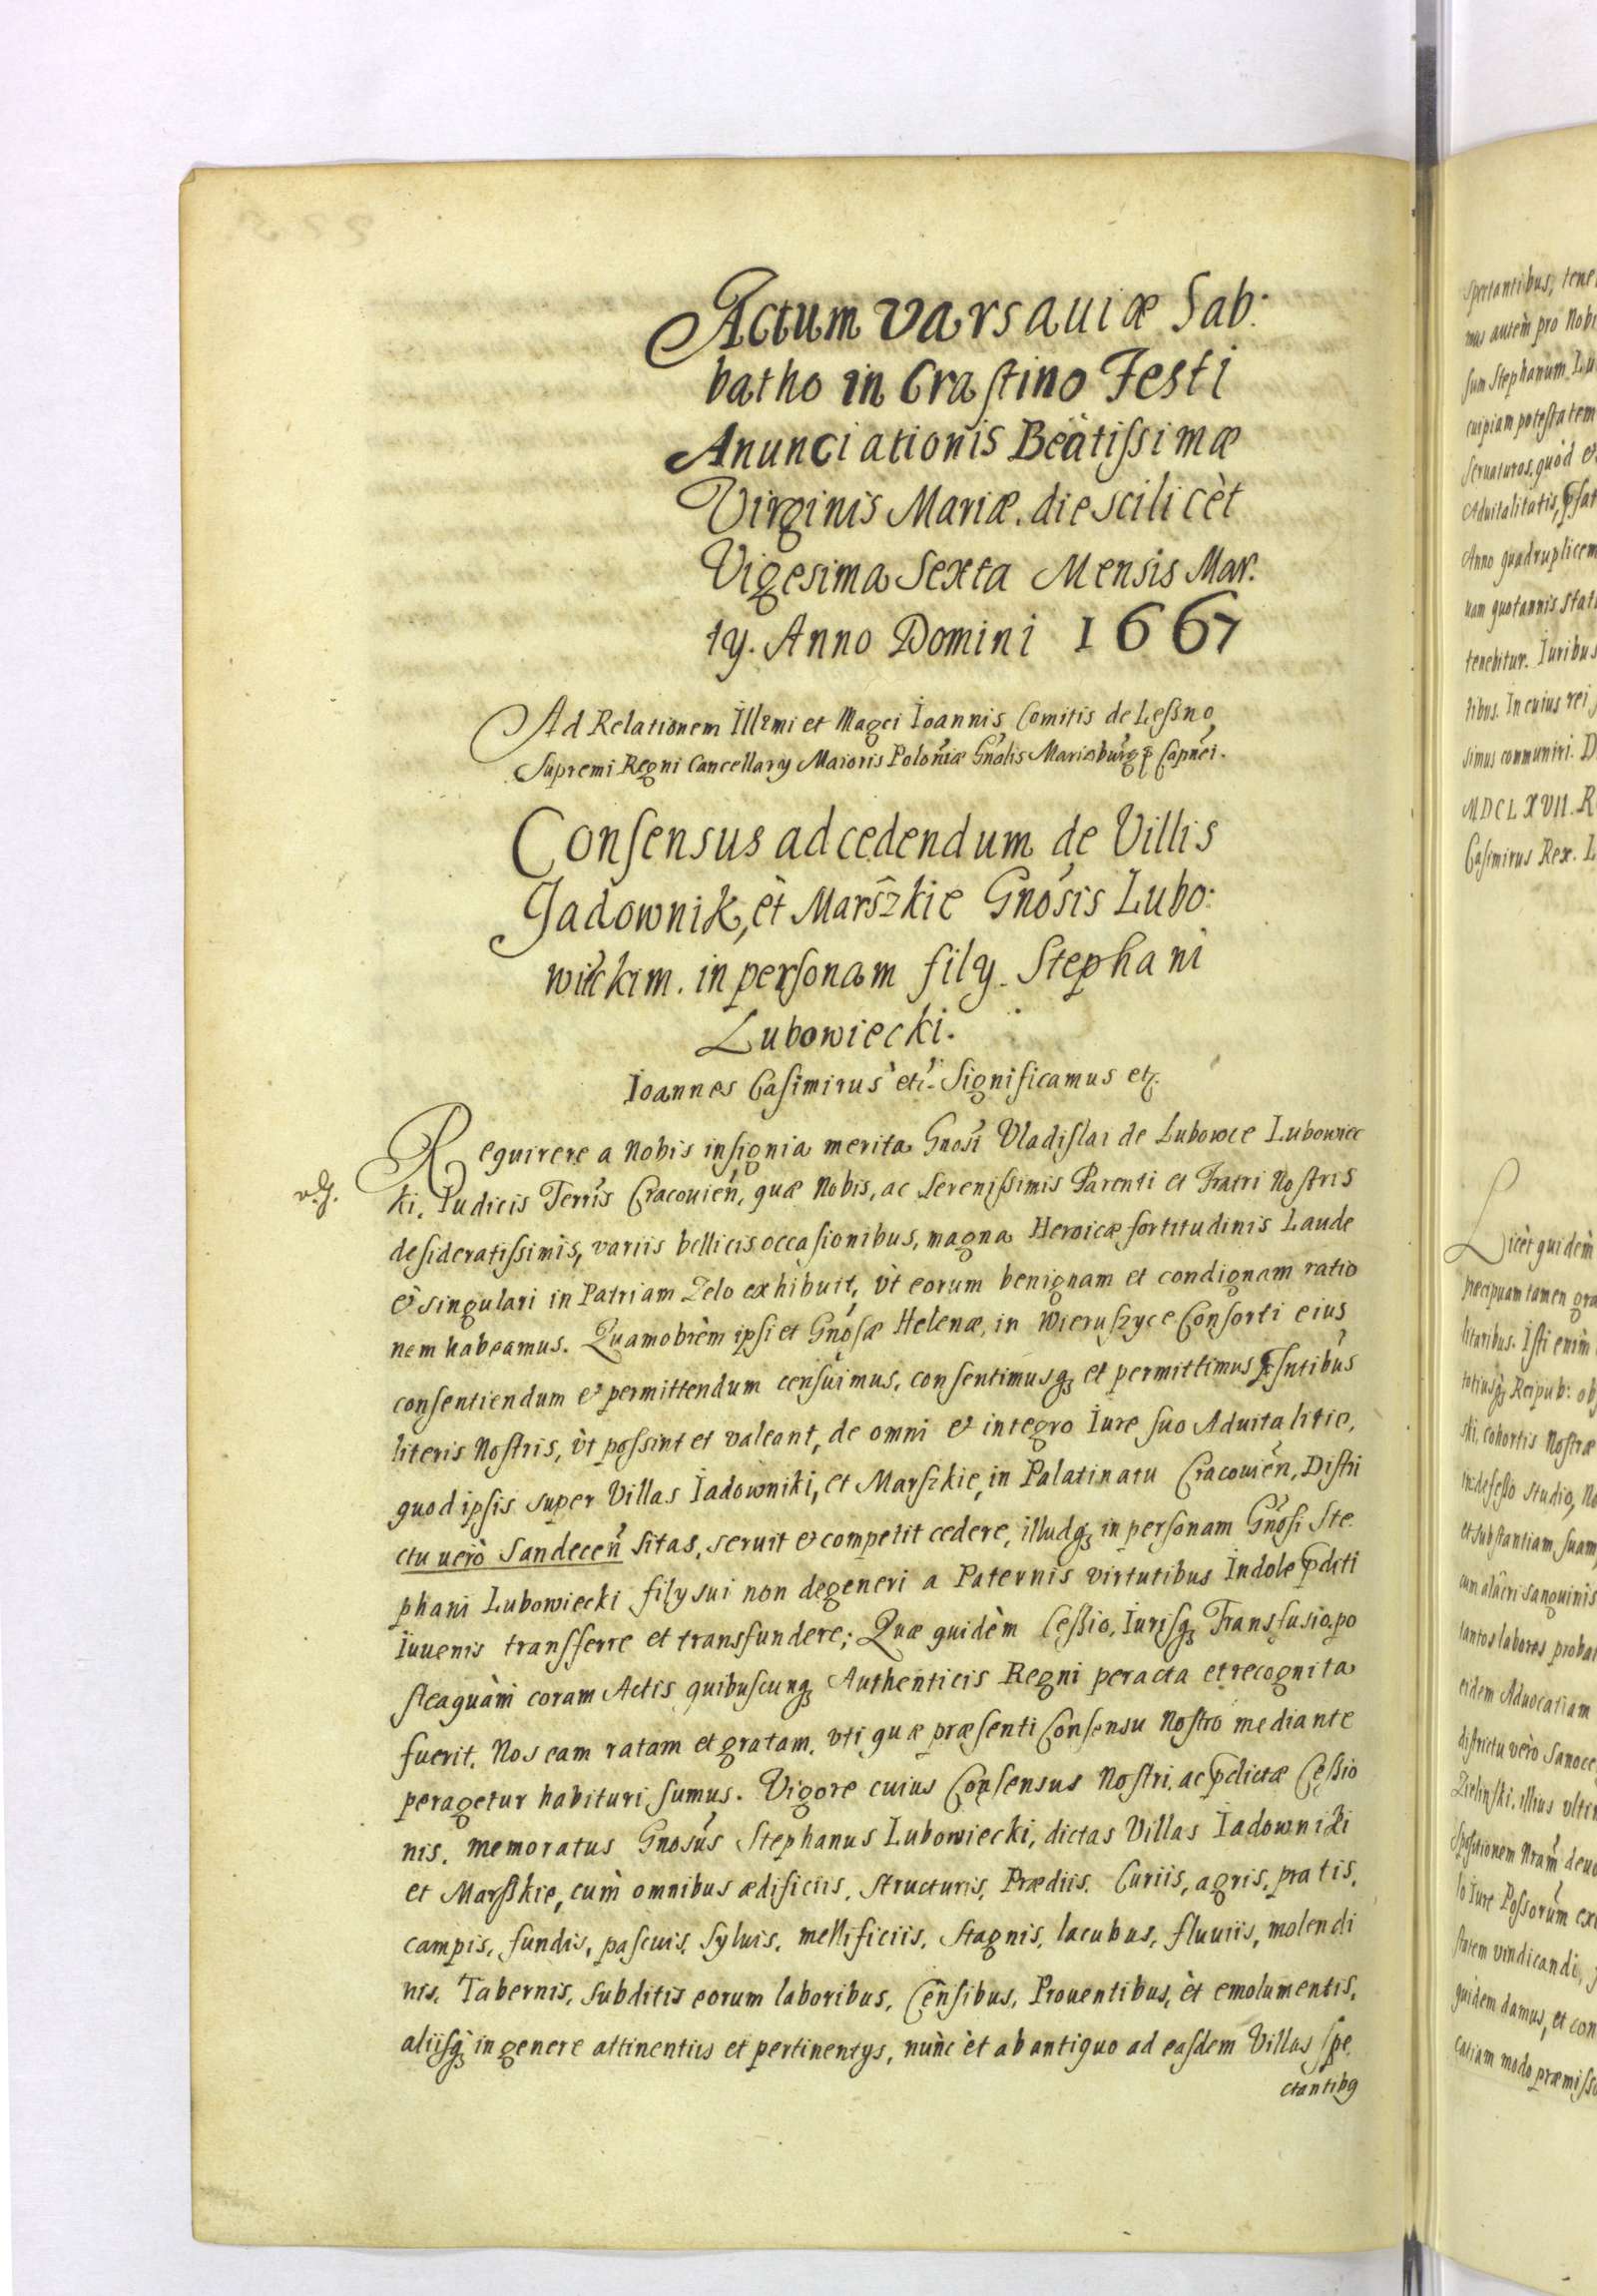 Actum Varsaviæ Sab:
batho in Crastino Festi
Anunciationis Beatissimæ
Virginis Mariæ. die scilicèt
Vigesima Sexta Mensis Mar:
ty. Anno Domini 1667
Ad Relationem Illrmi et Magci Ioannis Comitis de Leßno
Supremi Regni Cancellary Maioris Poloniæ Gnalis Mariæburg Capnei.
Consensus ad cedendum de Villis
Jadownik, et Marszkie Gnosis Lubo:
wieckim. in personam fily Stephani
Lubowiecki.
Ioannes Casimirus etc. Significamus etz.
Requirere a Nobis insignia merita Gnosi Vladislai de Lubowce Lubowiec
ki, Iudicis Terris Cracouien, quæ Nobis, ac Serenissimis Parenti et Fratri Nostris
desideratissimis, variis bellicis occasionibus, magna Heroicæ fortitudinis Laude
& singulari in Patriam Zelo exhibuit, ùt eorum benignam et condignam ratio
nem habeamus. Quamobrèm ipsi et Gnosæ Helenæ, in Wieruszyce Consorti eius
consentiendum & permittendum censuimus, consentimusq; et permittimus psntibus
literis Nostris, ùt possint et valeant, de omni & integro Iure suo Aduitalitio,
quod ipsis super Villas Iadowniki, et Marszkie, in Palatinatu Cracouien, Distri
ctu uerò Sandecen sitas, seruit & competit cedere, illudq; in personam Gnosi Ste
phani Lubowiecki fily sui non degeneri a Paternis virtutibus Indole pditi
Iuuenis transferre et transfundere; Quæ quidèm Cessio, Iurisq; Transfusio, po
steaquàm coram Actis quibuscunq; Authenticis Regni peracta et recognita
fuerit, Nos eam ratam et gratam, uti quæ præsenti Consensu Nostro mediante
peragetur habituri sumus. Vigore cuius Consensus Nostri, ac pdictæ Cessio
nis, memoratus Gnosus Stephanus Lubowiecki, dictas Villas Iadowniki
et Marszkie, cum omnibus ædificiis, structuris, Prædiis, Curiis, agris, pratis,
campis, fundis, pascuis, Syluis, mellificiis, Stagnis, lacubus, fluuiis, molendi
nis, Tabernis, subditis eorum laboribus, Censibus, Prouentibus, èt emolumentis,
aliisq; in genere attinentiis et pertinentys, nunc èt ab antiquo ad easdem Villas spe
ctantibg
spectantibus, tene
mus autem pro Nobi
sum Stephanum Lu
cuipiam potestatem
seruaturos, quòd
Aduitalitatis, psat
Anno quadruplicem
nam quotannis stat
tenebitur. Iuribus
libus. In cuius rei
simus communiri. D
MDCLXVII. R
Casimirus Rex. L
Licèt quidèm
præcipuam tamen gra
litaribus. Isti enim
totiusq; Reipub: ob
ski, cohortis Nostræ
indefesso studio, No
et substantiam suam
cum alacri sanguinis
tantos labores proba
eidem Aduocatiam
districtu verò Sanoce
Zielinski, illius ulti
Nram deuo
lo Iure Possorum ex
statem vindicandi,
quidem damus, et con
catiam modo præmiss